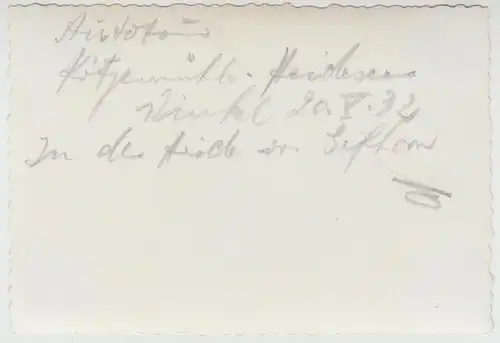 Autotour
Kötzemühle - Heidesee
Winkel 20. V. 32
In der Heide von